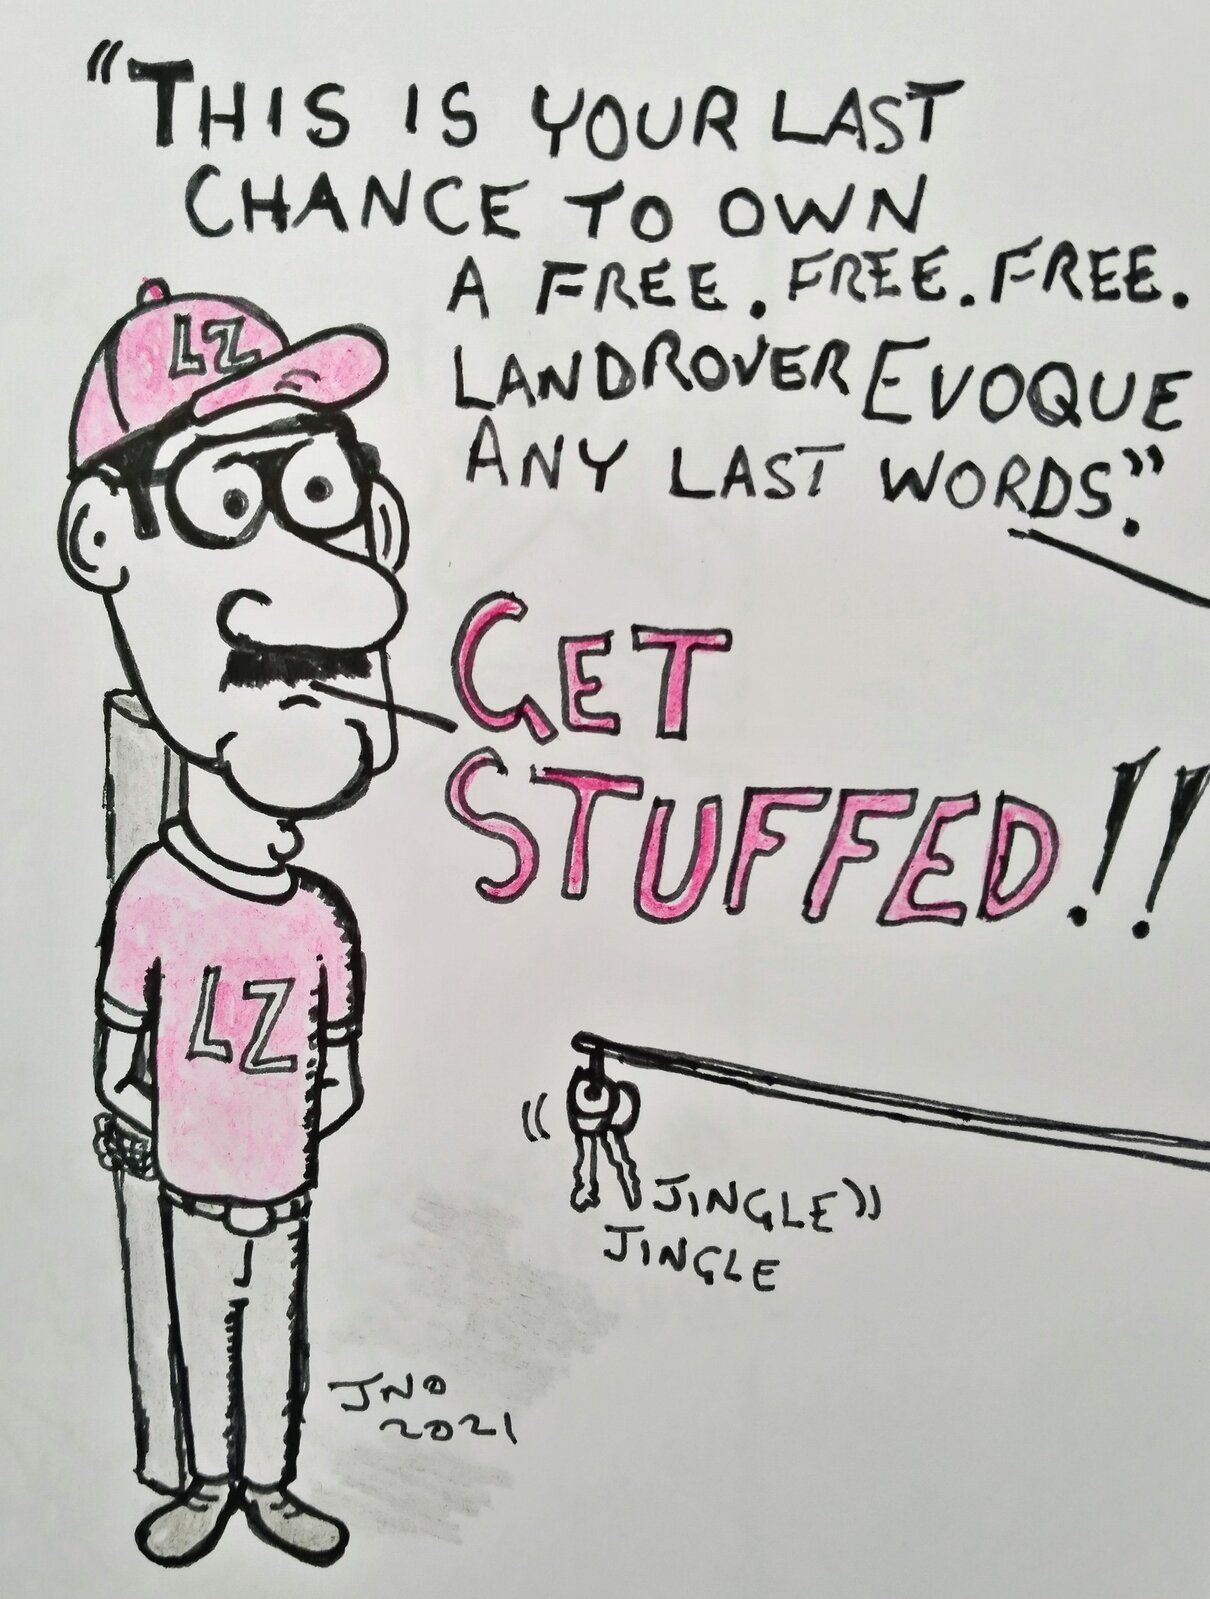 "THIS IS YOUR LAST
CHANCE TO OWN
A FREE. FREE. FREE.
LANDROVER EVOQUE
ANY LAST WORDS."
LZ
GET
STUFFED!!
LZ
JINGLE
JINGLE
JNO
2021